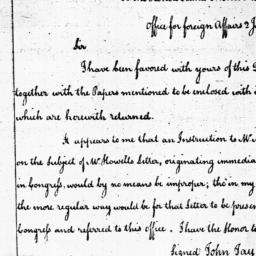 Office for foreign Affairs 2 J
Sir
I have been favored with yours of this
together with the Papers mentioned to be enclosed with
which are herewith returned.
It appears to me that an Instruction to Mr
on the Subject of Mr Howells Letter, originating immedia
in Congress, would by no means be improper; tho' in my
the more regular way would be for that Letter to be presen
Congress and referred to this office. I have the Honor to
Signed John Jay